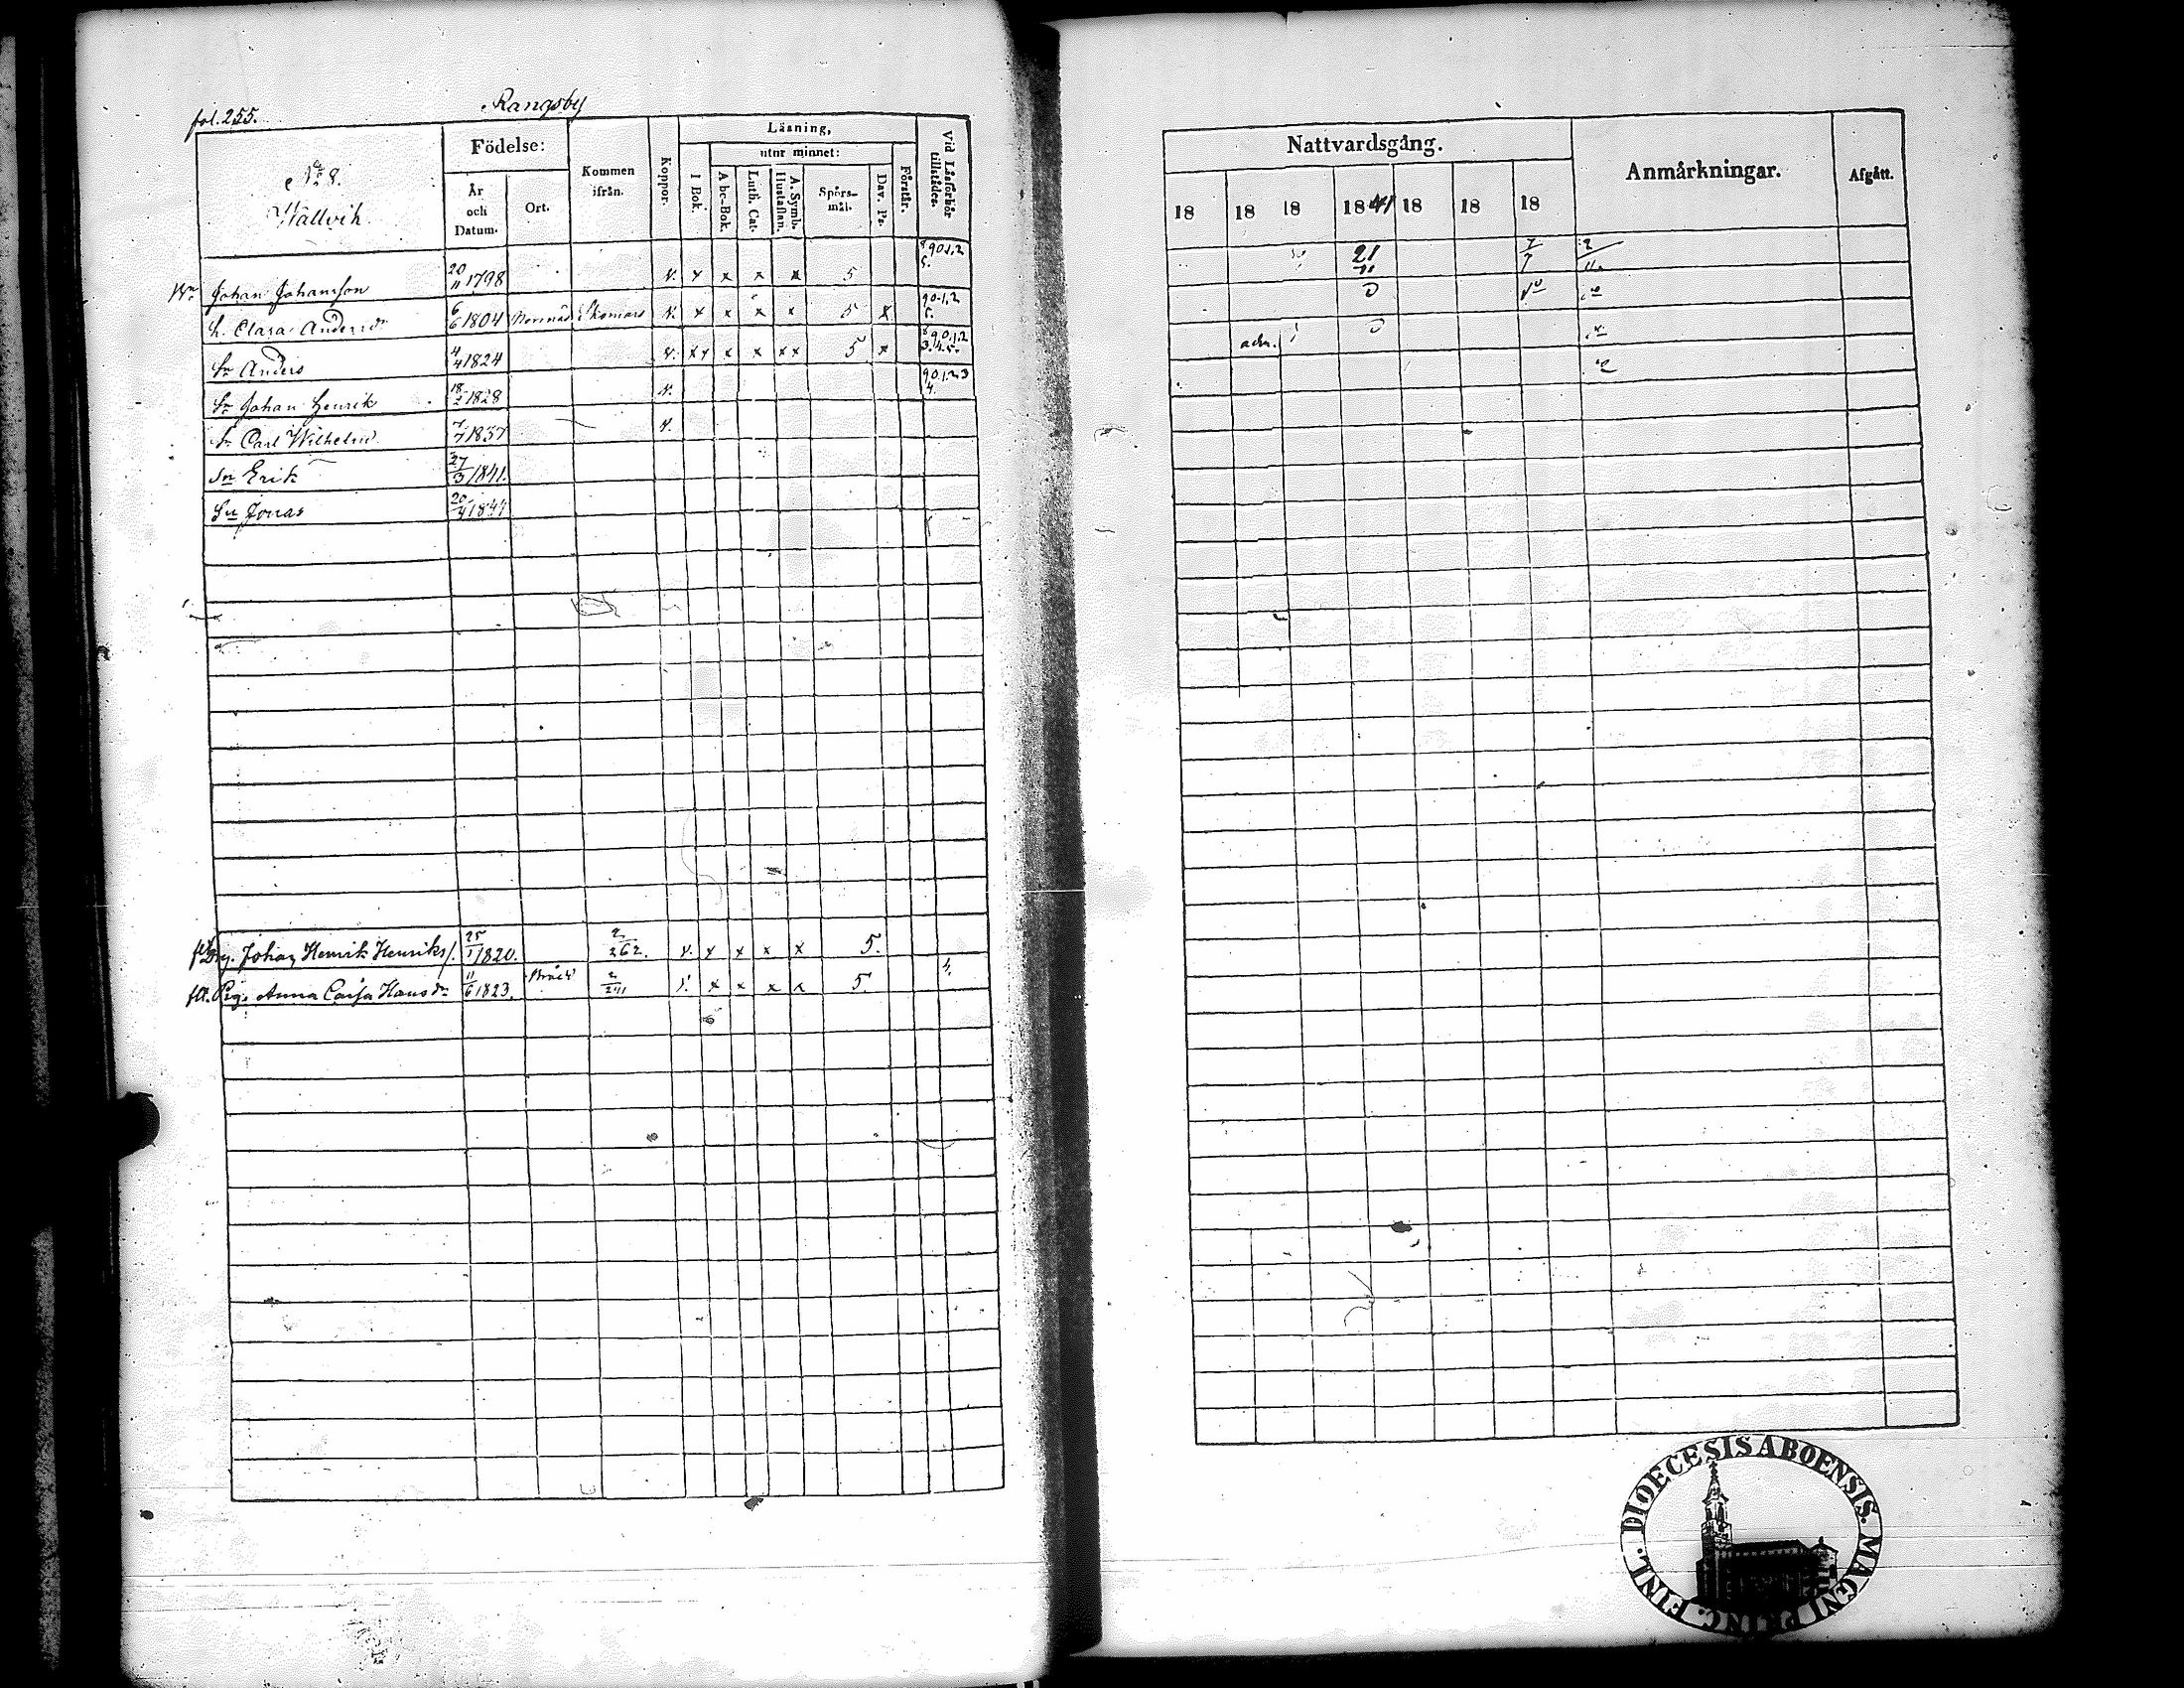 fol. 255. Rangsby
No 8.
Wallvik
Födelse:
År och Datum.
Ort.
Kommen ifrån.
Koppor.
Läsning,
I Bok.
utur minnet:
A bc-Bok.
Luth. Cat.
A. Symb. Hustaflan.
Spörs-mål.
Dav. Ps.
Förstår.
Vid Läsförhör tillstädes.
Johan Johansson 20/11 1798 v. x x x x 5 8 9 0.1.2 5.
h. Clara Andersdr 6/6 1804 v. x x x x 5 x 9 0.1.2 5.
Sn Anders 4/4 1824 v. x x x x x x 5 x 8 9.0.1.2 3.4.5.
Sn Johan Henrik 18/2 1828 v. 9 0.1.2 3 4.
Sn Carl Wilhelm 7/7 1837 v.
Sn Erik 27/3 1841.
Sn Jonas 20/4 1844
Johan Henrik Henrikss. 25/1 1820. 2/262. v. x x x x 5.
Pig. Anna Caisa Hansdr 11/6 1823. v. x x x x 5. 4.
Nattvardsgång.
18 18 18 1841 18 18 18
Anmärkningar.
Afgått.
21/11
adm.
DIOECESIS ABOENSIS. MAGNI PRINC. FINL.